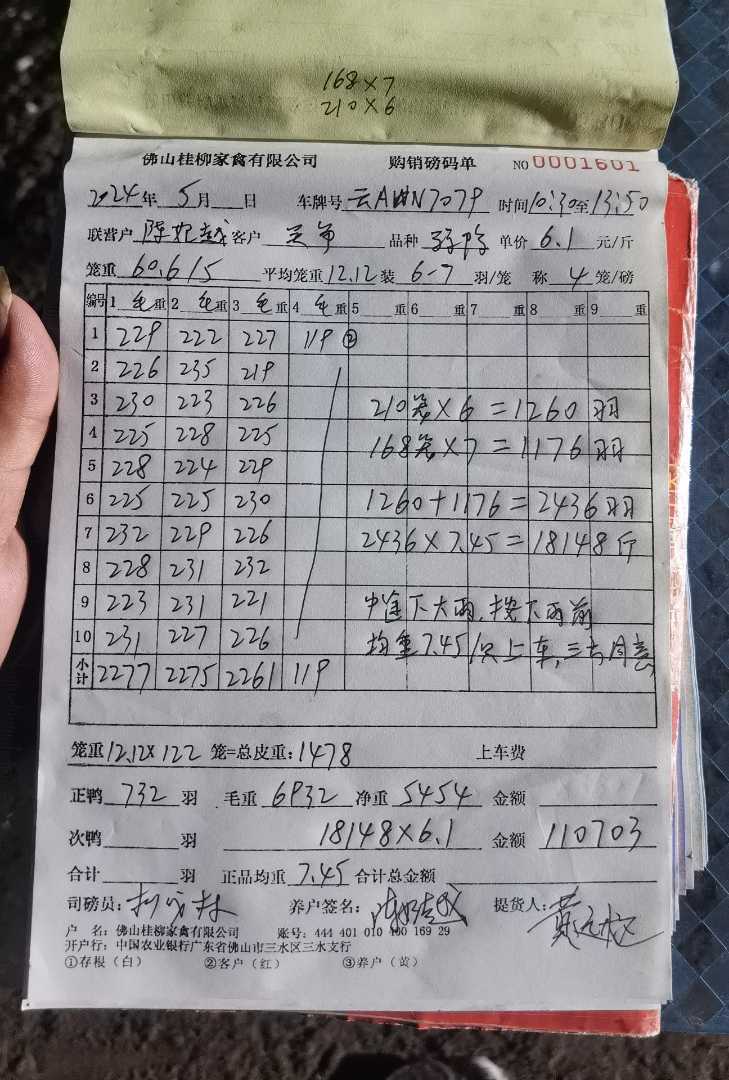 168×7
210×6
佛山桂柳家禽有限公司 购销磅码单 NO 0001601
2024年 5月 日 车牌号 云A 时间10:30至13:50
联营户 客户 品种 单价 6.1 元/斤
笼重 60.6/5 平均笼重12.12装 6-7 羽/笼 称 4 笼/磅
编号 1 毛重 2 毛重 3 毛重 4 毛重 5 重 6 重 7 重 8 重 9 重
1 229 222 227 119 ②
2 226 235 219
3 230 223 226 210笼×6=1260羽
4 225 228 225 168笼×7=1176羽
5 228 224 229
6 225 225 230 1260+1176=2436羽
7 232 229 226 2436×7.45=18148斤
8 228 231 232
9 223 231 221 中途下大雨,按下雨前
10 231 227 226 均重7.45/只上车,三方同意
小计 2277 2275 2261 119
笼重12.12×122 笼=总皮重:1478 上车费
正鸭 732 羽 毛重 6932 净重 5454 金额
次鸭 羽 18148×6.1 金额 110703
合计 羽 正品均重 7.45 合计总金额
司磅员: 养户签名: 提货人:
户 名:佛山桂柳家禽有限公司 账号:444 401 010 400 169 29
开户行:中国农业银行广东省佛山市三水区三水支行
①存根(白) ②客户(红) ③养户(黄)